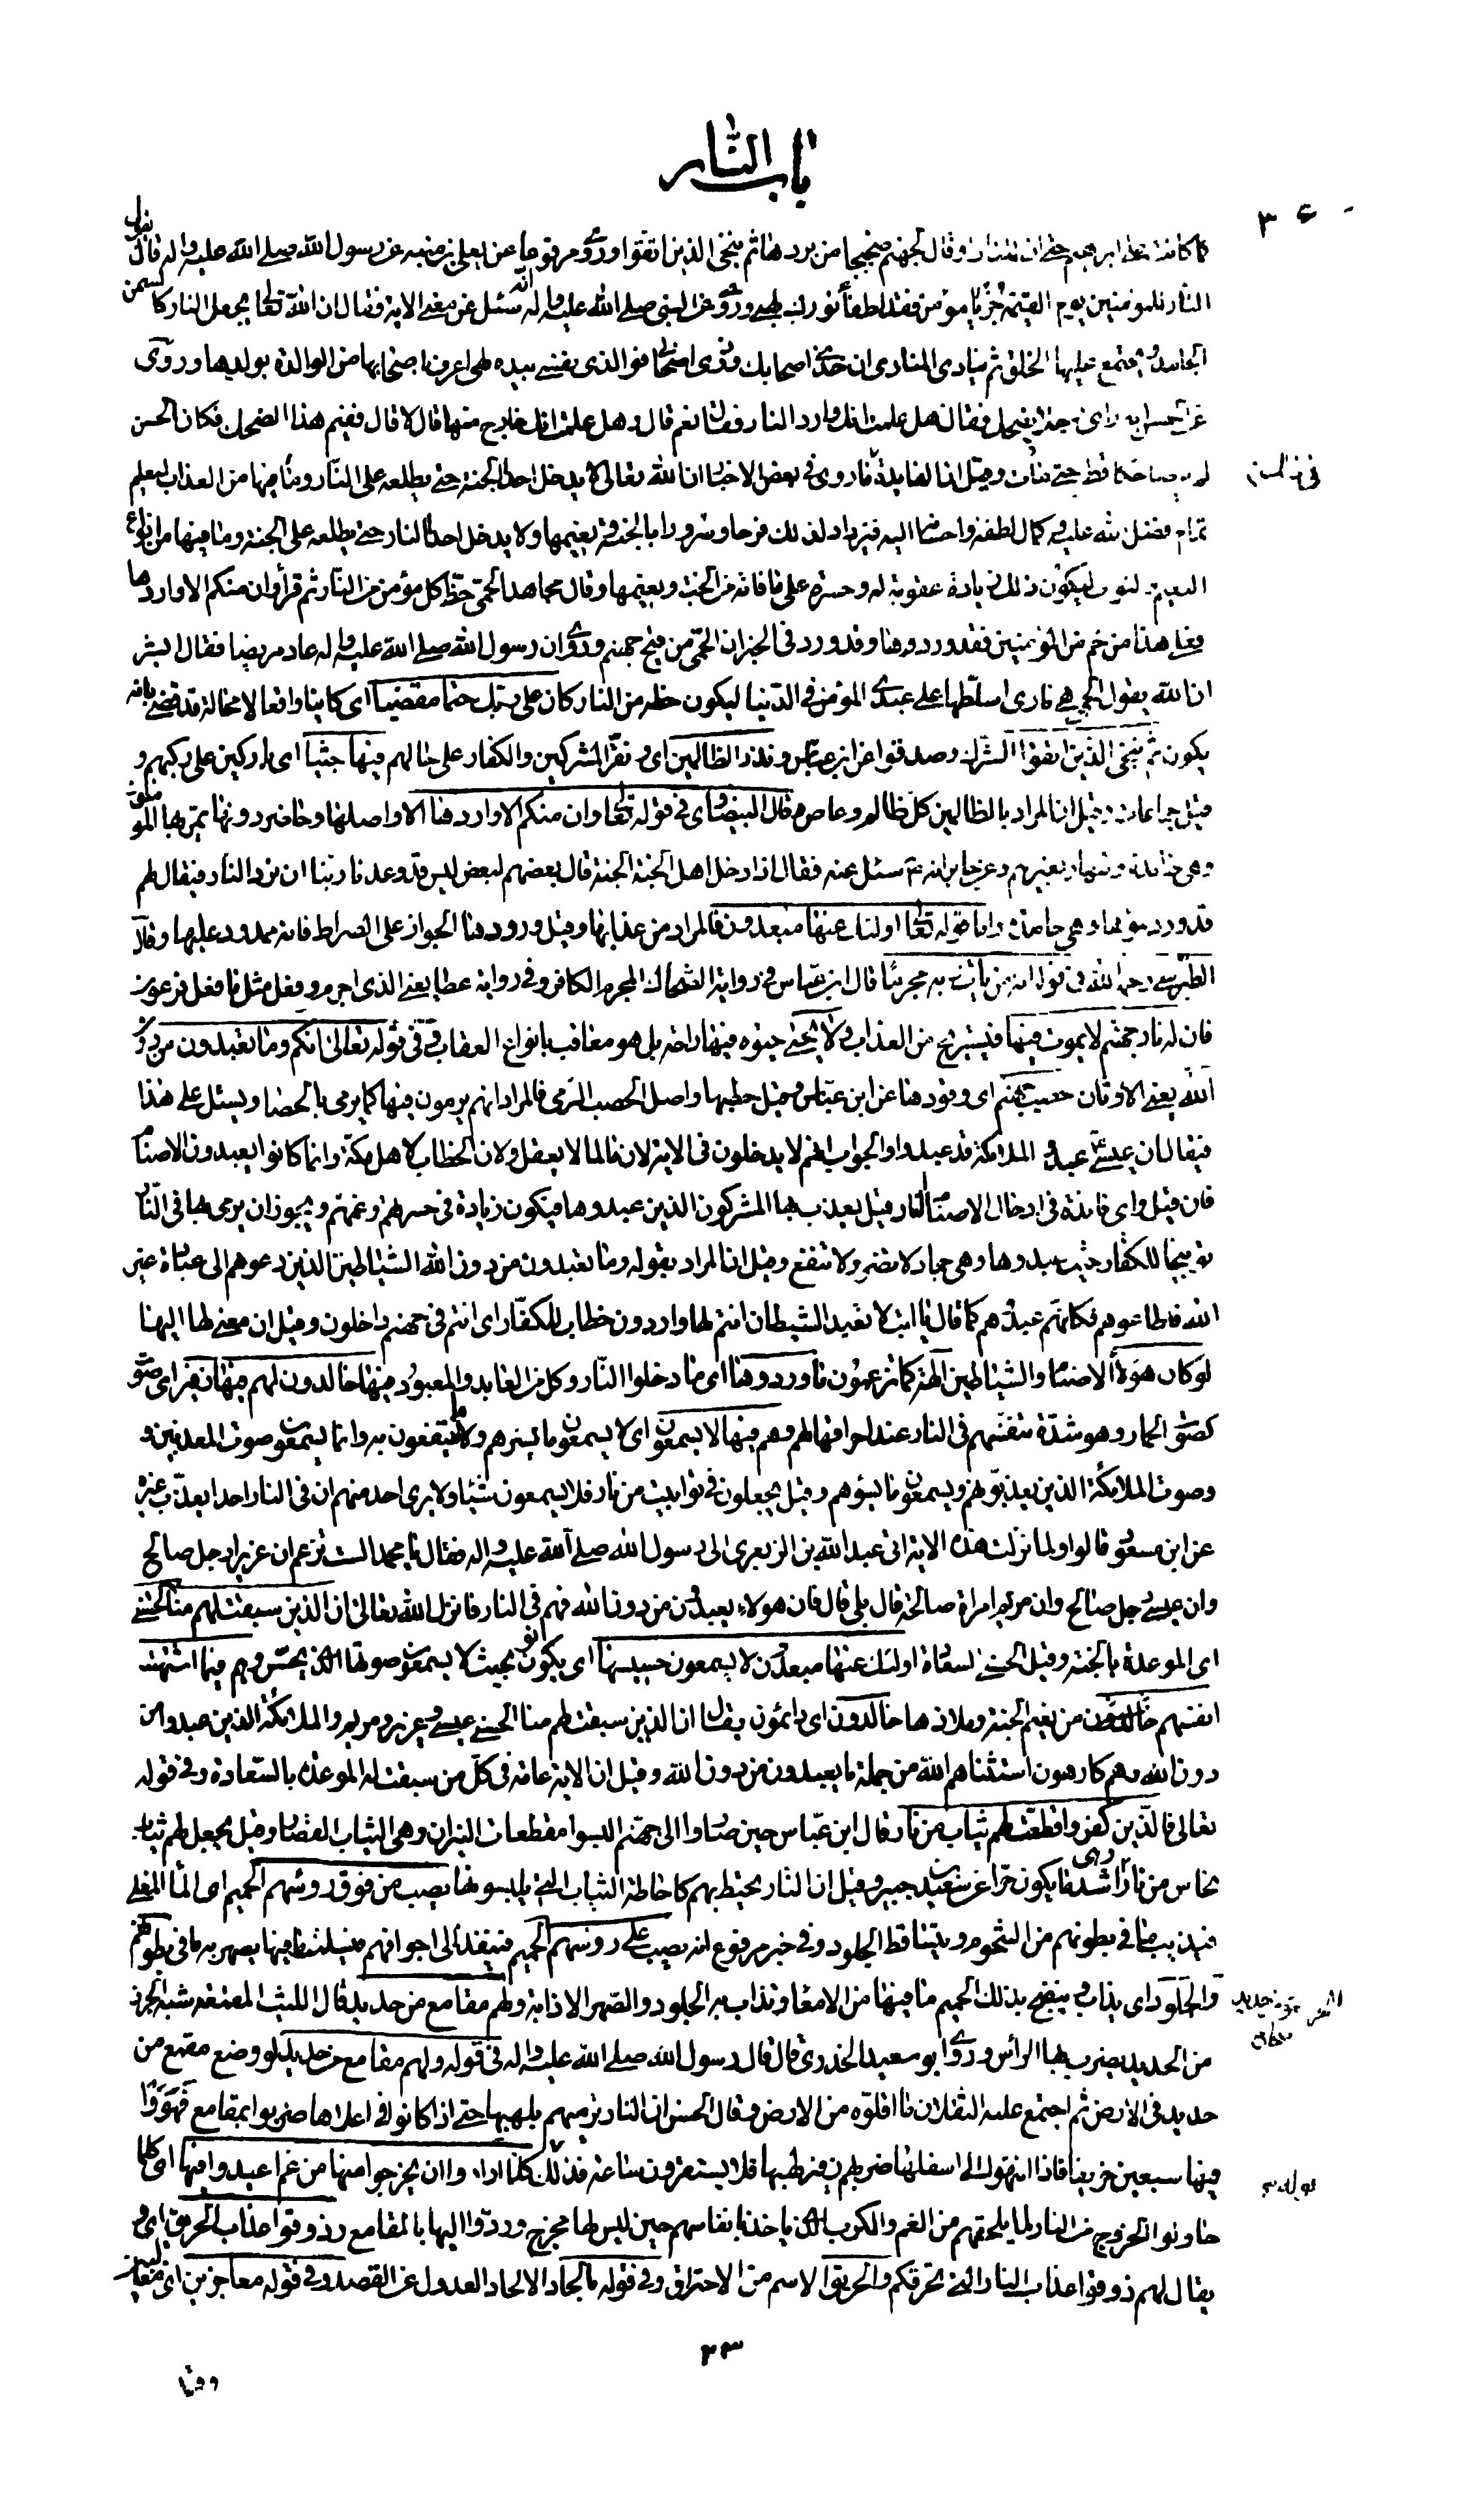 باب النار
٣٤٠
كما كانت على ابرهيم حتى ان للنار او قال لجهنم ضجيجا من بردها ثم ننجى الذين اتقوا وروى مرفوعا عن يعلى بن منبه عن رسول الله صلى الله عليه واله قال تقول
النار للمؤمنين يوم القيمة جز يا مؤمن فقد اطفأ نورك لهبى وروى عن النبى صلى الله عليه واله انه سئل عن معنى الاية فقال ان الله تعالى يجعل النار كالسمن
الجامد ويجتمع عليها الخلق ثم ينادى المنادى ان خذى اصحابك وذرى اصحابى فوالذى نفسى بيده لهى اعرف باصحابها من الوالدة بولدها وروى
عن الحسن انه راى رجلا يضحك فقال هل علمت انك وارد النار فقال نعم قال وهل علمت انك خارج منها قال لا قال ففيم هذا الضحك فكان الحسن
لم ير ضاحكا قط حتى مات وقيل ان الفايدة ما روى فى بعض الاخبار ان الله تعالى لا يدخل احدا الجنة حتى يطلعه على النار وما فيها من العذاب ليعلم
تمام فضل الله عليه وكمال لطفه واحسانه اليه فيزداد لذلك فرحا وسرورا بالجنة ونعيمها ولا يدخل احدا النار حتى يطلعه على الجنة وما فيها من انواع
النعيم والثواب ليكون ذلك زيادة عقوبة له وحسرة على ما فاته من الجنة ونعيمها وقال مجاهد الحمى حظ كل مؤمن من النار ثم قرأ وان منكم الا واردها
فعلى هذا من حم من المؤمنين فقد وردها وقد ورد فى الخبر ان الحمى من فيح جهنم وروى ان رسول الله صلى الله عليه واله عاد مريضا فقال ابشر
ان الله يقول الحمى هى نارى اسلطها على عبدى المؤمن فى الدنيا ليكون حظه من النار كان على ربك حتما مقضيا اى كاينا واقعا لا محالة قد قضى بانه
يكون ثم ننجى الذين اتقوا الشرك وصدقوا عن ابن عباس ونذر الظالمين اى ونقر المشركين والكفار على حالهم فيها جثيا اى باركين على ركبهم و
قيل جماعات وقيل ان المراد بالظالمين كل ظالم وعاص وقال البيضاوى فى قوله تعالى وان منكم الا واردها الا واصلها وحاضر دونها يمر بها المؤمنون
وهى خامدة وتنهار بغيرهم وعن جابر انه ص سئل عنه فقال اذا دخل اهل الجنة الجنة قال بعضهم لبعض اليس قد وعدنا ربنا ان نرد النار فيقال لهم
قد وردتموها وهى خامدة واما قوله تعالى اولئك عنها مبعدون فالمراد من عذابها وقيل ورودها الجواز على الصراط فانه ممدود عليها وقال
الطبرسى رحمه الله فى قوله انه من يات ربه مجرما قال ابن عباس فى رواية الضحاك المجرم الكافر وفى رواية عطا يعنى الذى اجرم وفعل مثل ما فعل فرعون
فان له نار جهنم لا يموت فيها فيستريح من العذاب ولا يحيى حيوة فيها راحة بل هو معاقب بانواع العقاب وفى قوله تعالى انكم وما تعبدون من دون
الله يعنى الاوثان حصب جهنم اى وقودها عن ابن عباس وقيل حطبها واصل الحصب الرمى فالمراد انهم يرمون فيها كما يرمى بالحصا ويسئل على هذا
فيقال ان عيسى ع عبد والملائكة قد عبدوا والجواب انهم لا يدخلون فى الاية لان ما لما لا يعقل ولان الخطاب لاهل مكة وانما كانوا يعبدون الاصنام
فان قيل واى فائدة فى ادخال الاصنام النار قيل يعذب بها المشركون الذين عبدوها فيكون زيادة فى حسرتهم وغمهم ويجوز ان يرمى بها فى النار
توبيخا للكفار حيث عبدوها وهى جماد لا تضر ولا تنفع وقيل ان المراد بقوله وما تعبدون من دون الله الشياطين الذين دعوهم الى عبادة غير
الله فاطاعوهم فكانهم عبدوهم كما قال يا ابت لا تعبد الشيطان انتم لها واردون خطاب للكفار اى انتم فى جهنم داخلون وقيل ان معنى لها اليها
لو كان هؤلاء الاصنام والشياطين الهة كما تزعمون ما وردوها اى ما دخلوا النار وكل من العابد والمعبود فيها خالدون لهم فيها زفير اى صوت
كصوت الحمار وهو شدة تنفسهم فى النار عند احراقها لهم وهم فيها لا يسمعون اى لا يسمعون ما يسرهم ولا ما ينتفعون به وانما يسمعون صوت المعذبين و
وصوت الملائكة الذين يعذبونهم ويسمعون ما يسؤهم وقيل يجعلون فى توابيت من نار فلا يسمعون شيئا ولا يرى احد منهم ان فى النار احدا يعذب غيره
عن ابن مسعود قالوا ولما نزلت هذه الاية اتى عبد الله بن الزبعرى الى رسول الله صلى الله عليه واله فقال يا محمد الست تزعم ان عزيرا رجل صالح
وان عيسى رجل صالح وان مريم امراة صالحة قال بلى قال فان هولاء يعبدون من دون الله فهم فى النار فانزل الله تعالى ان الذين سبقت لهم منا الحسنى
اى الموعدة بالجنة وقيل الحسنى السعادة اولئك عنها مبعدون لا يسمعون حسيسها اى يكونون بحيث لا يسمعون صوتها الذى يحس وهم فيما اشتهت
انفسهم خالدون من نعيم الجنة وملاذها خالدون اى دائمون يقال ان الذين سبقت لهم منا الحسنى عيسى وعزير ومريم والملائكة الذين عبدوا من
دون الله وهم كارهون استثناهم الله من جملة ما يعبدون من دون الله وقيل ان الاية عامة فى كل من سبقت له الموعدة بالسعادة وفى قوله
تعالى فالذين كفروا قطعت لهم ثياب من نار قال ابن عباس حين صاروا الى جهنم البسوا مقطعات النيران وهى الثياب القصار وقيل يجعل لهم ثياب
نحاس من نار وهى اشد ما يكون حرا عن سعيد بن جبير وقيل ان النار يحيط بهم كاحاطة الثياب التى يلبسونها يصب من فوق رؤسهم الحميم اى الماء المغلى
فيذيب ما فى بطونهم من الشحوم ويتساقط الجلود وفى خبر مرفوع انه يصب على رؤسهم الحميم فينفذ الى اجوافهم فيسلت ما فيها يصهر به ما فى بطونهم
والجلود اى يذاب وينضج بذلك الحميم ما فيها من الامعاء وتذاب به الجلود والصهر الاذابة ولهم مقامع من حديد قال الليث المقمعة شبه الجرز
من الحديد يضرب بها الرأس وروى ابو سعيد الخدرى قال قال رسول الله صلى الله عليه واله فى قوله ولهم مقامع من حديد لو وضع مقمع من
حديد فى الارض ثم اجتمع عليه الثقلان ما اقلوه من الارض وقال الحسن ان النار ترميهم بلهبها حتى اذا كانوا فى اعلاها ضربوا بمقامع فهووا
فيها سبعين خريفا فاذا انتهوا الى اسفلها ضربهم زفير لهبها فلا يستقرون ساعة فذلك قوله كلما ارادوا ان يخرجوا منها من غم اعيدوا فيها اى كلما
حاولوا الخروج من النار لما يلحقهم من الغم والكرب الذى ياخذ بانفاسهم حين ليس لها مخرج وردوا اليها بالمقامع وذوقوا عذاب الحريق اى و
يقال لهم ذوقوا عذاب النار التى تحرقكم والحريق الاسم من الاحتراق وفى قوله بالحاد الالحاد العدول عن القصد وفى قوله معاجزين اى مغالبين
٢٣